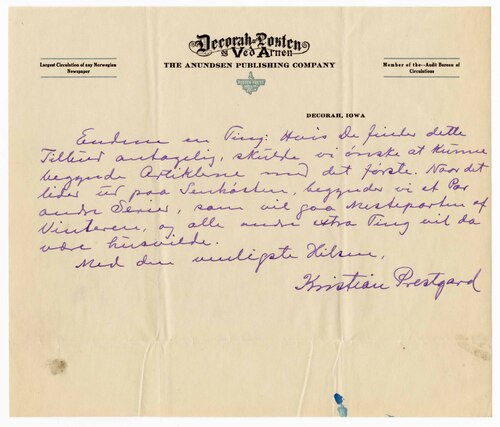 Decorah-Posten
og Ved Arnen
THE ANUNDSEN PUBLISHING COMPANY
Largest Circulation of any Norwegian
Newspaper
Member of the—Audit Bureau of
Circulations
DECORAH, IOWA
Endnu en Ting: Hvis De finder dette
Tilbud antagelig, skulde vi ønske at kunne
begynde Artiklene med det første. Naar det
lider ud paa Senhøsten, begynder vi et Par
andre Serier, som vil gaa Mesteparten af
Vinteren, og alle andre extra Ting vil da
være husvilde.
Med den venligste Hilsen,
Kristian Prestgard